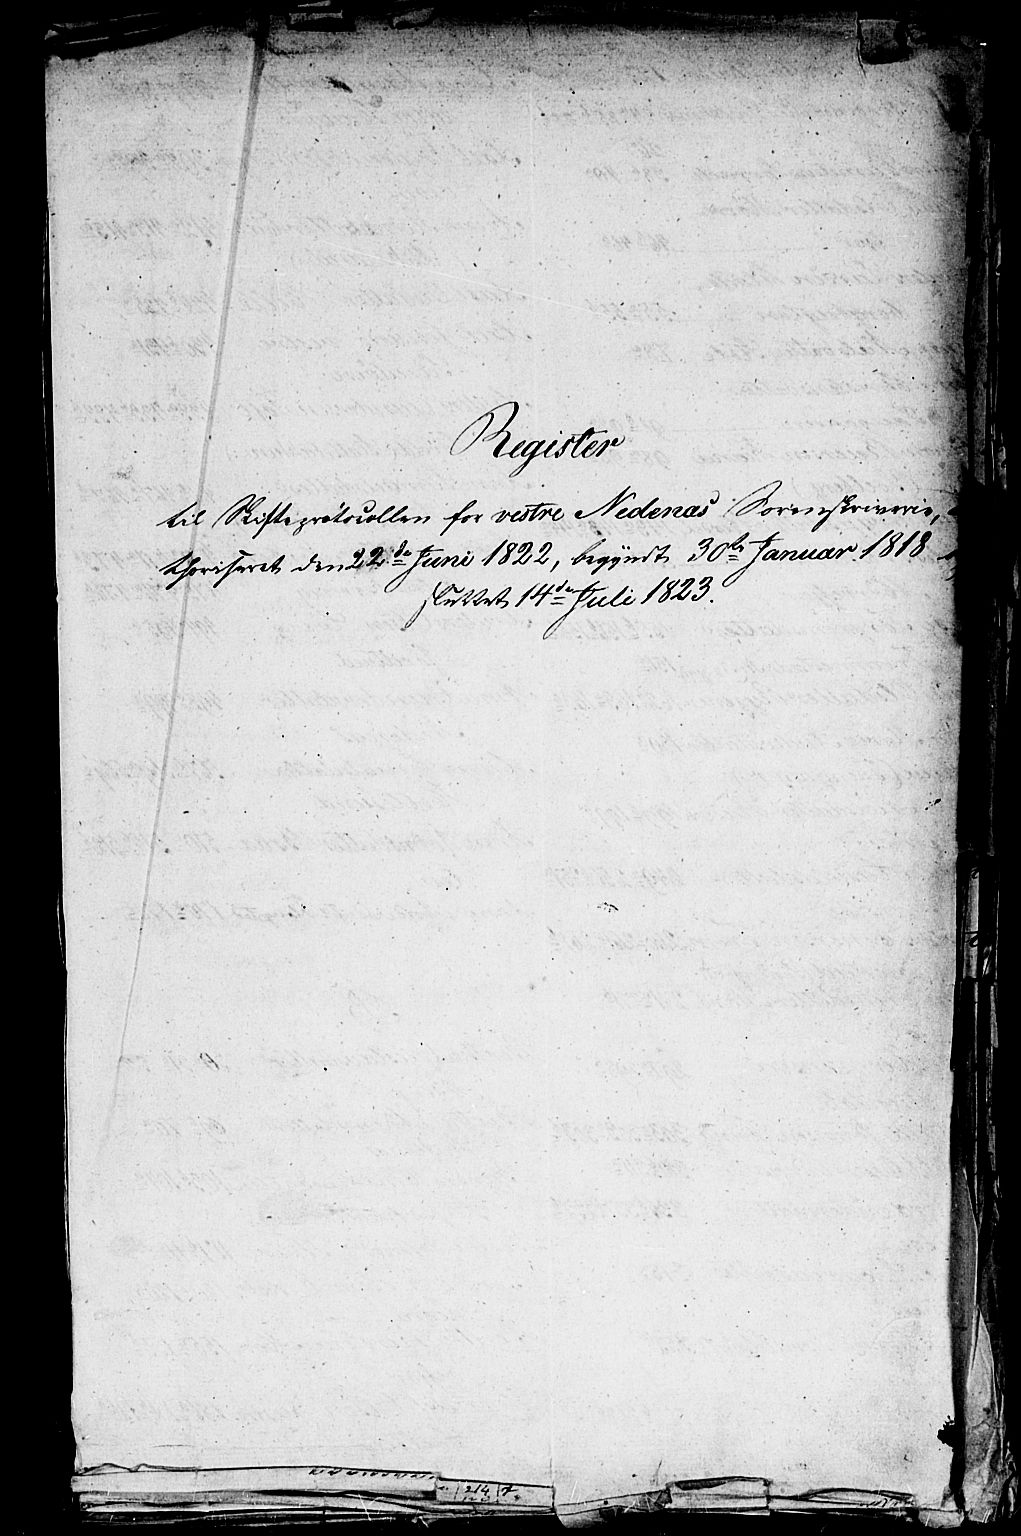 Register
til Skifteprotocollen for vestre Nedenæs Sorenskriverie,
thoriseret den 22de Juni 1822, begyndt 30te Januar 1818
sluttet 14de Juli 1823.